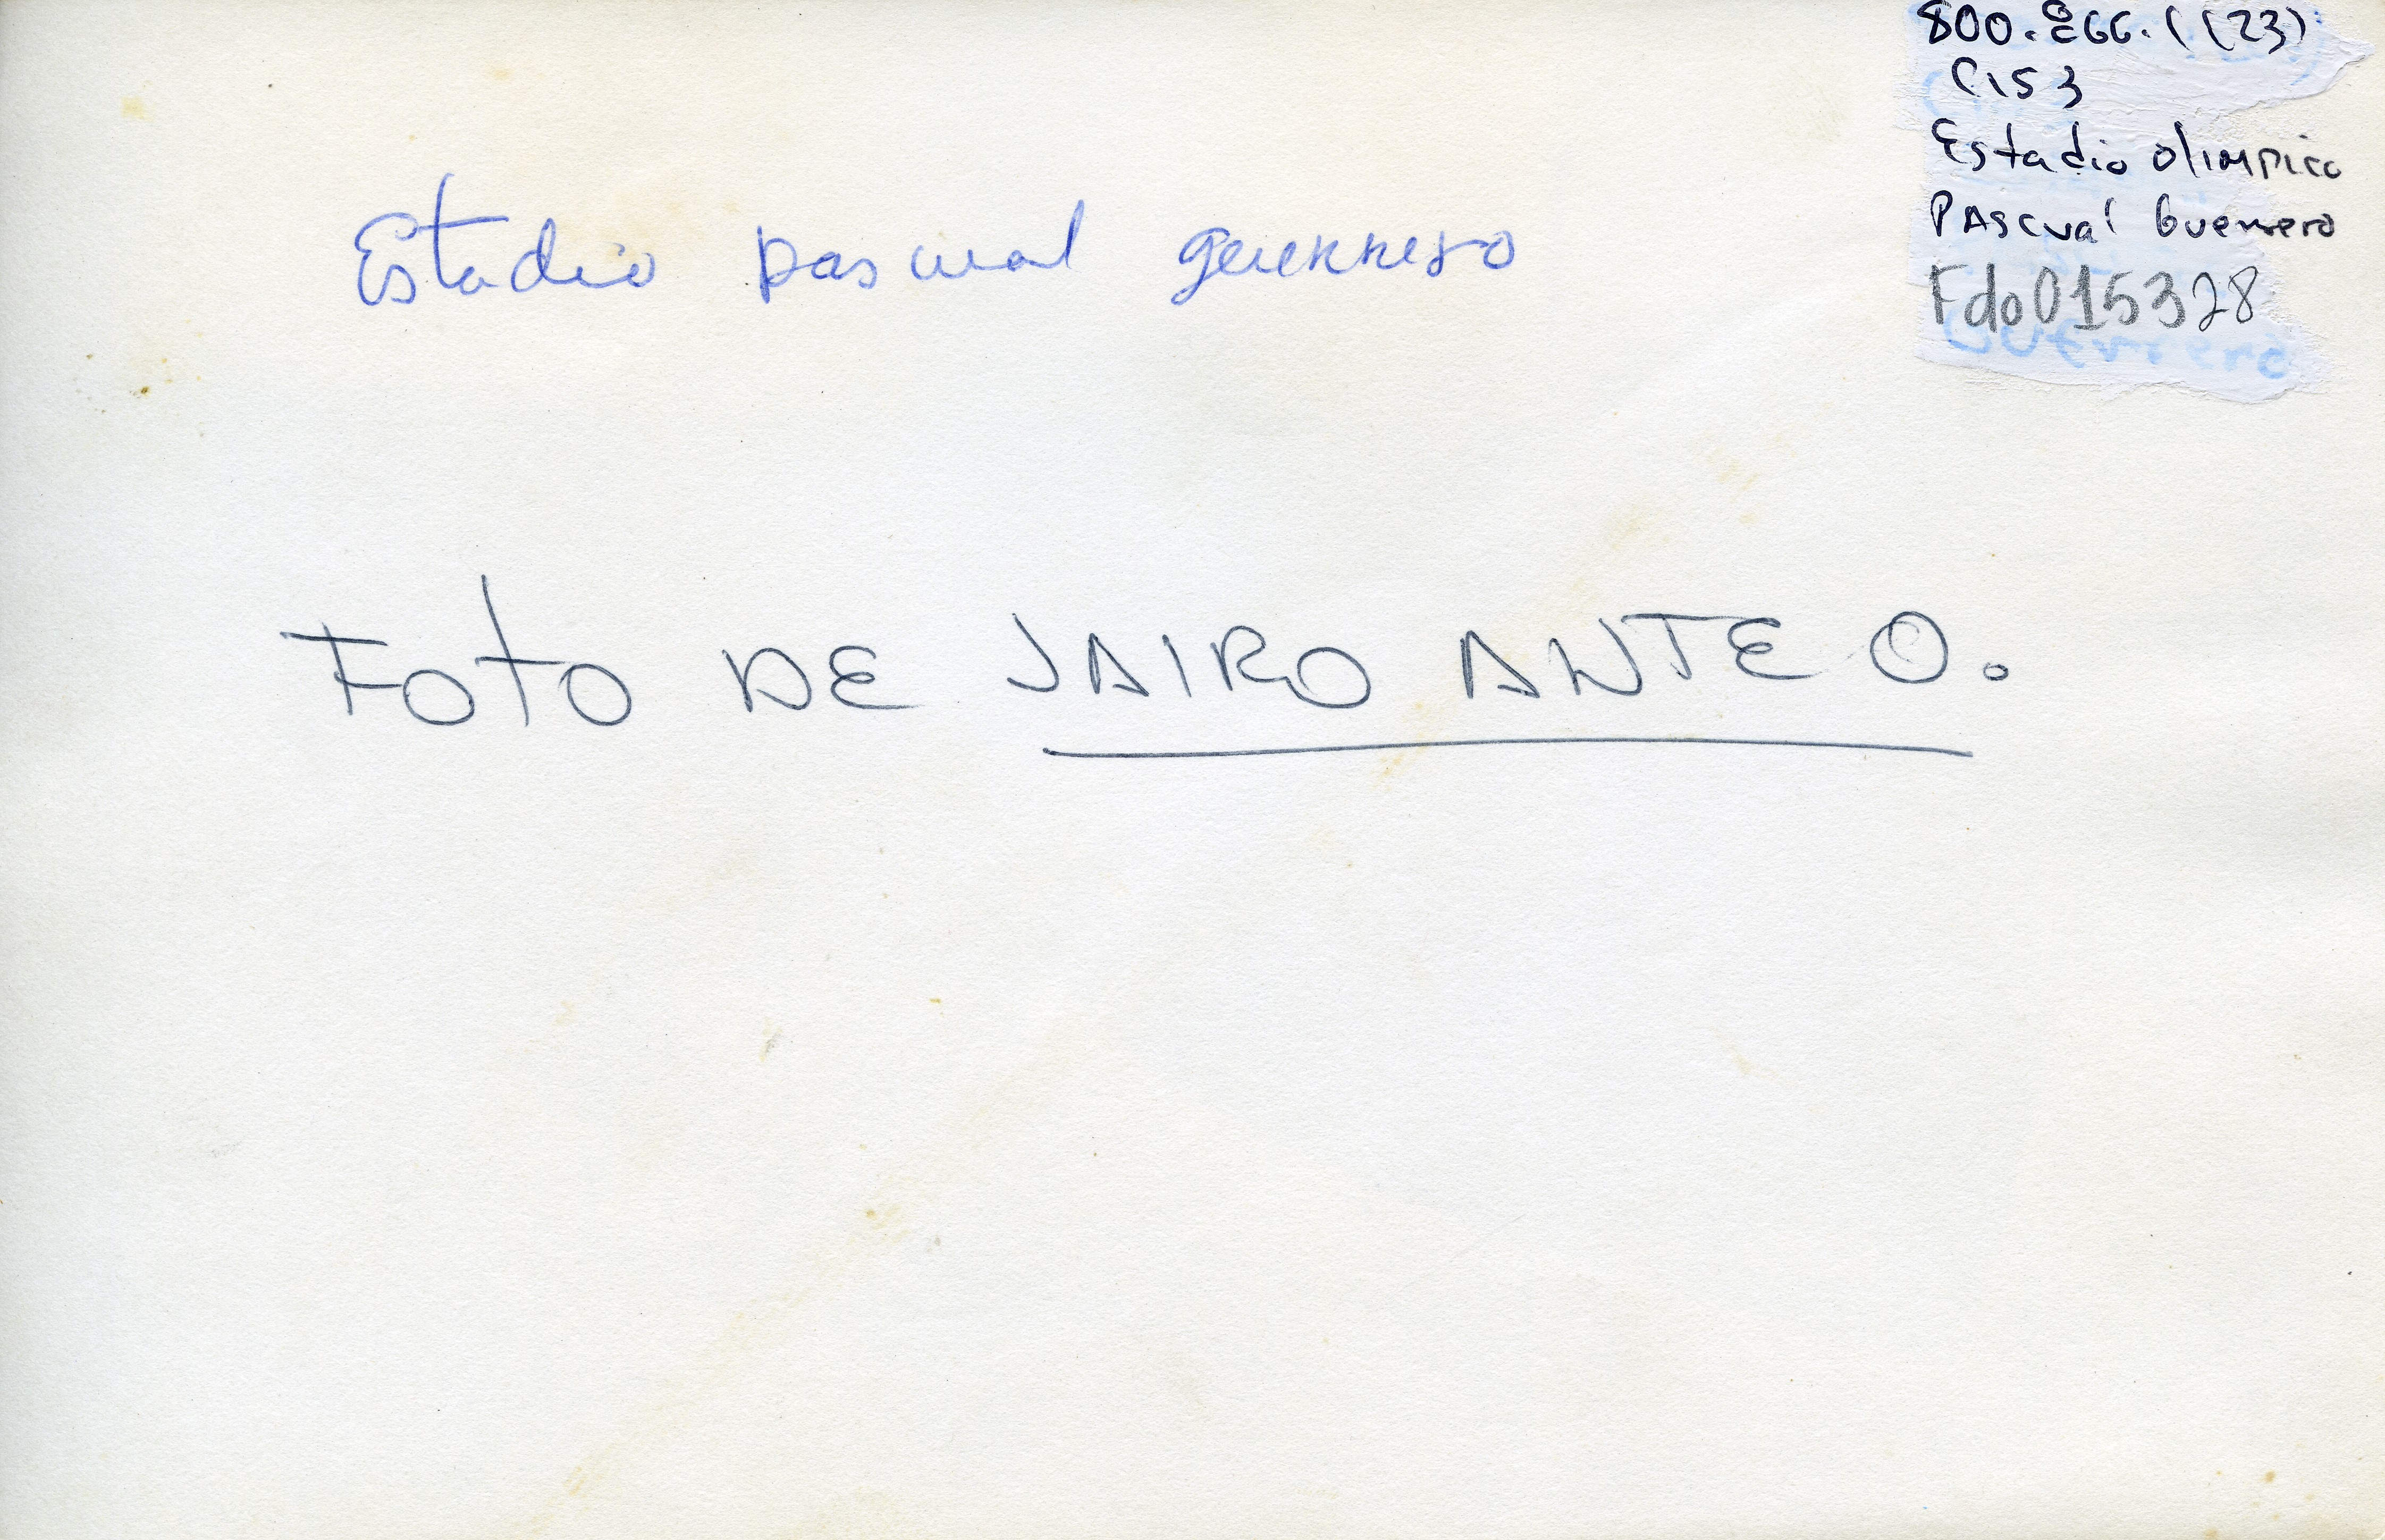 C153
Estadio Olimpico
Pascual Guerrero
Fdo015328
Guerrero
Estadio pascual guerrero
Foto DE JAIRO ANTE O.